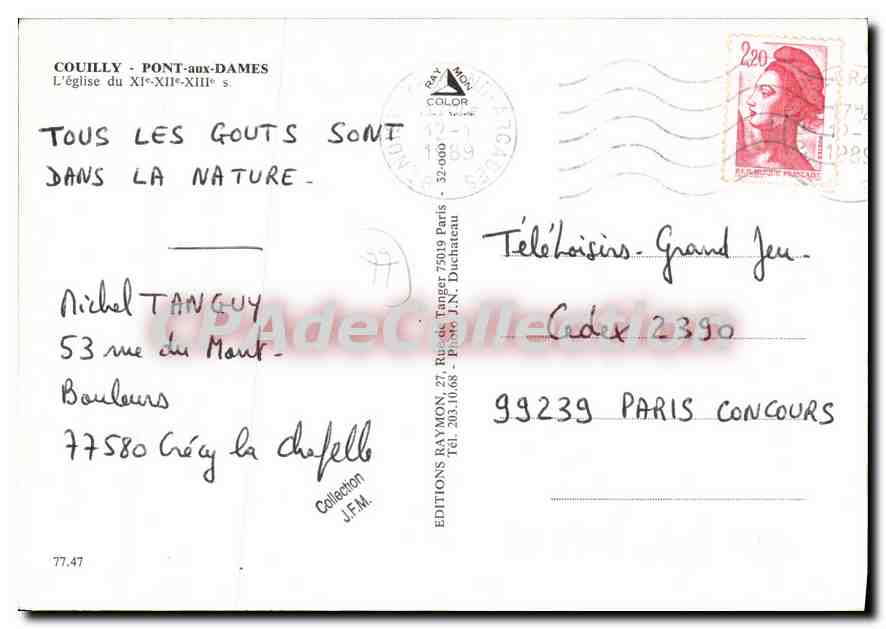 COUILLY - PONT-aux-DAMES
L'église du XIe-XIIe-XIIIe s.
TOUS LES GOUTS SONT
DANS LA NATURE.
77
Michel TANGUY
53 rue du Mont-
Bouleurs
77580 Crécy la Chapelle
Collection
J.F.M.
77.47
RAY MON
COLOR
12-1
1989
EDITIONS RAYMON, 27, Rue de Tanger 75019 Paris - 52-000
Tél. 203.10.68 - Photo J.N. Duchateau
2,20
REPUBLIQUE FRANÇAISE
1989
TéléLoisirs - Grand Jeu -
Cedex 2390
99239 PARIS CONCOURS
CPAdeCollection